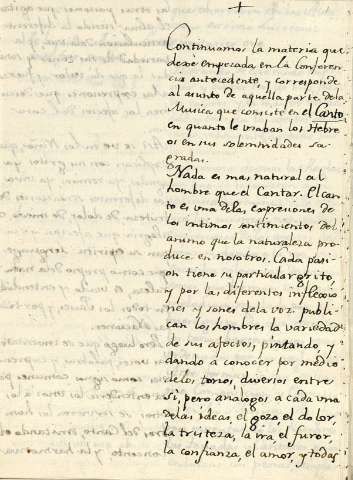 +
Continuamos la materia que
dexe empezada en la Conferen-
cia antecedente, y corresponde
al asunto de aquella parte dela
Musica que consiste en el Canto
en quanto le usaban los Hebre
os en sus solemnidades sa
gradas.
Nada es mas natural al
hombre que el Cantar. El can
to es una delas expresiones de
los intimos sentimientos del
animo que la naturaleza pro
duce en nosotros. Cada pasi
on tiene su particular grito,
y por las diferentes inflexio
nes y sones dela voz publi
can los hombres la variedad
de sus afectos, pintando, y
dando a conocer por medio
delos tonos, diversos entre
sí, pero analogos a cada una
delas ideas el gozo, el dolor,
la tristeza, la ira, el furor,
la confianza, el amor, y todas